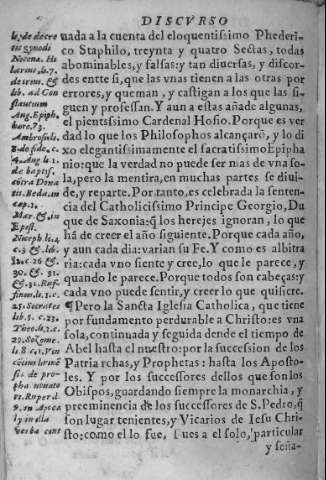 DISCVRSO
uada a la cuenta del eloquentissimo Phederi-
co Staphilo, treynta y quatro Sectas, todas
abominables, y falsas: y tan diuersas, y discor-
des entre si, que las vnas tienen a las otras por
errores, y queman, y castigan a los que las si-
guen y professan. Y aun a estas añade algunas,
el pientissimo Cardenal Hosio. Porque es ver
dad lo que los Philosophos alcançarõ, y lo di
xo elegantissimamente el sacratissimo Epipha
nio: que la verdad no puede ser mas de vna so-
la, pero la mentira, en muchas partes se diui-
de, y reparte. Por tanto, es celebrada la senten-
cia del Catholicissimo Principe Georgio, Du
que de Saxonia: q̃ los herejes ignoran, lo que
hã de creer el año siguiente. Porque cada año,
y aun cada dia: varian su Fe. Y como es albitra
ria: cada vno siente y cree, lo que le parece, y
quando le parece. Porque todos son cabeças: y
cada vno puede sentir, y creer lo que quisiere.
¶ Pero la Sancta Iglesia Catholica, que tiene
por fundamento perdurable a Christo: es vna
sola, continuada y seguida dende el tiempo de
Abel hasta el nuestro: por la succession de los
Patriarchas, y Prophetas: hasta los Aposto-
les. Y por los successores dellos que son los
Obispos, guardando siempre la monarchia, y
preeminencia de los successores de S. Pedro, q̃
son lugar tenientes, y Vicarios de Iesu Chri-
sto: como el lo fue, pues a el solo, particular
y seña-
le, de decre
tis synodi
Nicena. Hi
larius, li. 7.
de trini. &
lib. ad Con
stantium
Ang. Epiph.
hære. 73.
Ambros. li.
3. de fide. c.
4. Aug. li. 2.
de baptis.
cõtra Dona
tis. Beda, in
cap. 2.
Mar. &, in
Epist.
Niceph. li. 2
5. Socrates
lib. 5. c. 23.